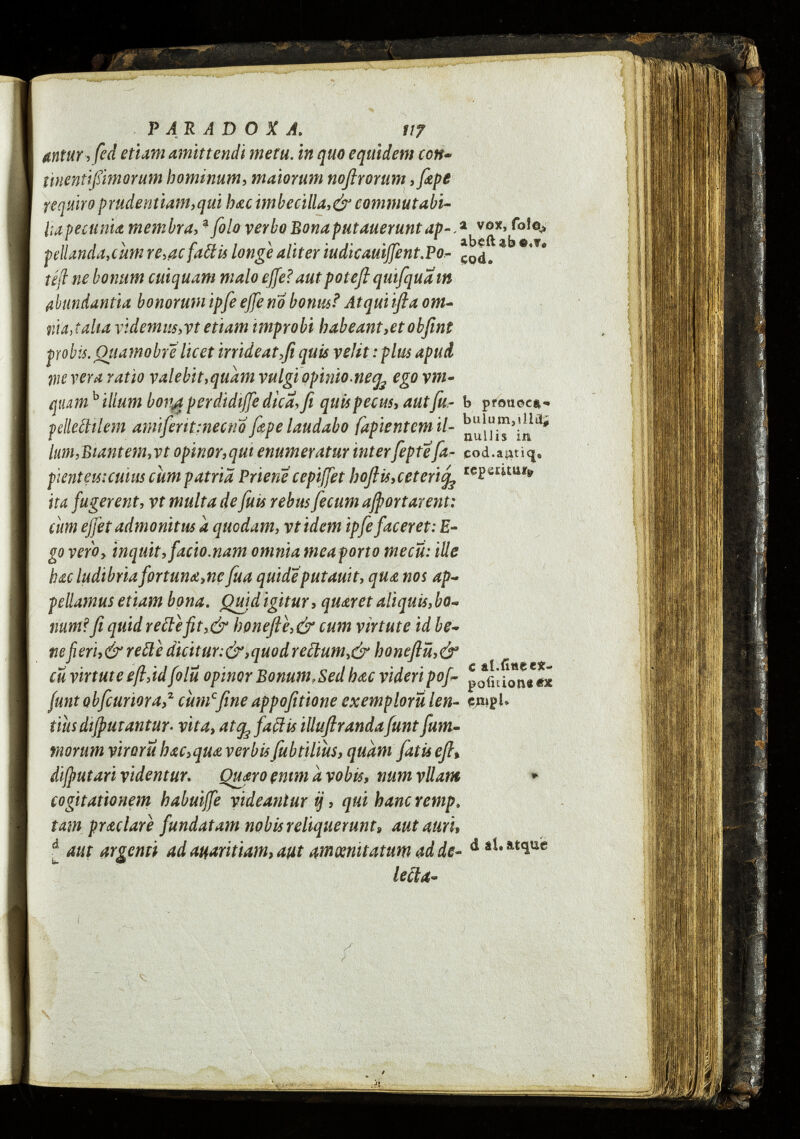 PARADOXA. 117
antur, ſed etiam amittendi metu. in quo equidem con-
tinentißimorum hominum, maiorum noſtrorum, ſæpe
requiro prudentiam, qui hæc imbecilla, & commutabi-
lia pecuniæ membra, ª ſolo verbo Bona putauerunt ap-
pellanda, cùm re, ac factis longè aliter iudicauiſſent. Po-
teſt ne bonum cuiquam malo eſſe? aut poteſt quiſquā in
abundantia bonorum ipſe eſſe nō bonus? Atqui iſta om-
nia, talia videmus, vt etiam improbi habeant, et obſint
probis. Quamobrē licet irrideat, ſi quis velit: plus apud
me vera ratio valebit, quàm vulgi opinio. neq; ego vm-
quam ᵇ illum bona perdidiſſe dicā, ſi quis pecus, aut ſu-
pellectilem amiſerit: nec nō ſæpe laudabo ſapientem il-
lum, Biantem, vt opinor, qui enumeratur inter ſeptē ſa-
pienteis: cuius cùm patriā Prienē cepiſſet hoſtis, ceteriq;
ita fugerent, vt multa de ſuis rebus ſecum aſportarent:
cùm eſſet admonitus à quodam, vt idem ipſe faceret: E-
go verò, inquit, facio. nam omnia mea porto mecū: ille
hæc ludibria fortunæ, ne ſua quidē putauit, quæ nos ap-
pellamus etiam bona. Quid igitur, quæret aliquis, bo-
num? ſi quid rectè fit, & honeſtè, & cum virtute id be-
ne fieri, & rectè dicitur: &, quod rectum, & honeſtū, &
cū virtute eſt, id ſolū opinor Bonum. Sed hæc videri poſ-
ſunt obſcuriora,² cùm ᶜ ſine appoſitione exemplorū len-
tiùs diſputantur. vita, atq; factis illuſtranda ſunt ſum-
morum virorū hæc, quæ verbis ſubtiliùs, quàm ſatis eſt,
diſputari videntur. Quæro enim à vobis, num vllam
cogitationem habuiſſe videantur ij, qui hanc remp.
tam præclarè fundatam nobis reliquerunt, aut auri,
ᵈ aut argenti ad auaritiam, aut amœnitatum ad de-
lecta-
a vox, ſolo,
abeſt ab e.v.
cod.
b prouoca-
bulum, illū,
nullis in
cod. antiq.
reperitur.
c al. ſine ex-
poſitione ex
empl.
d al. atque